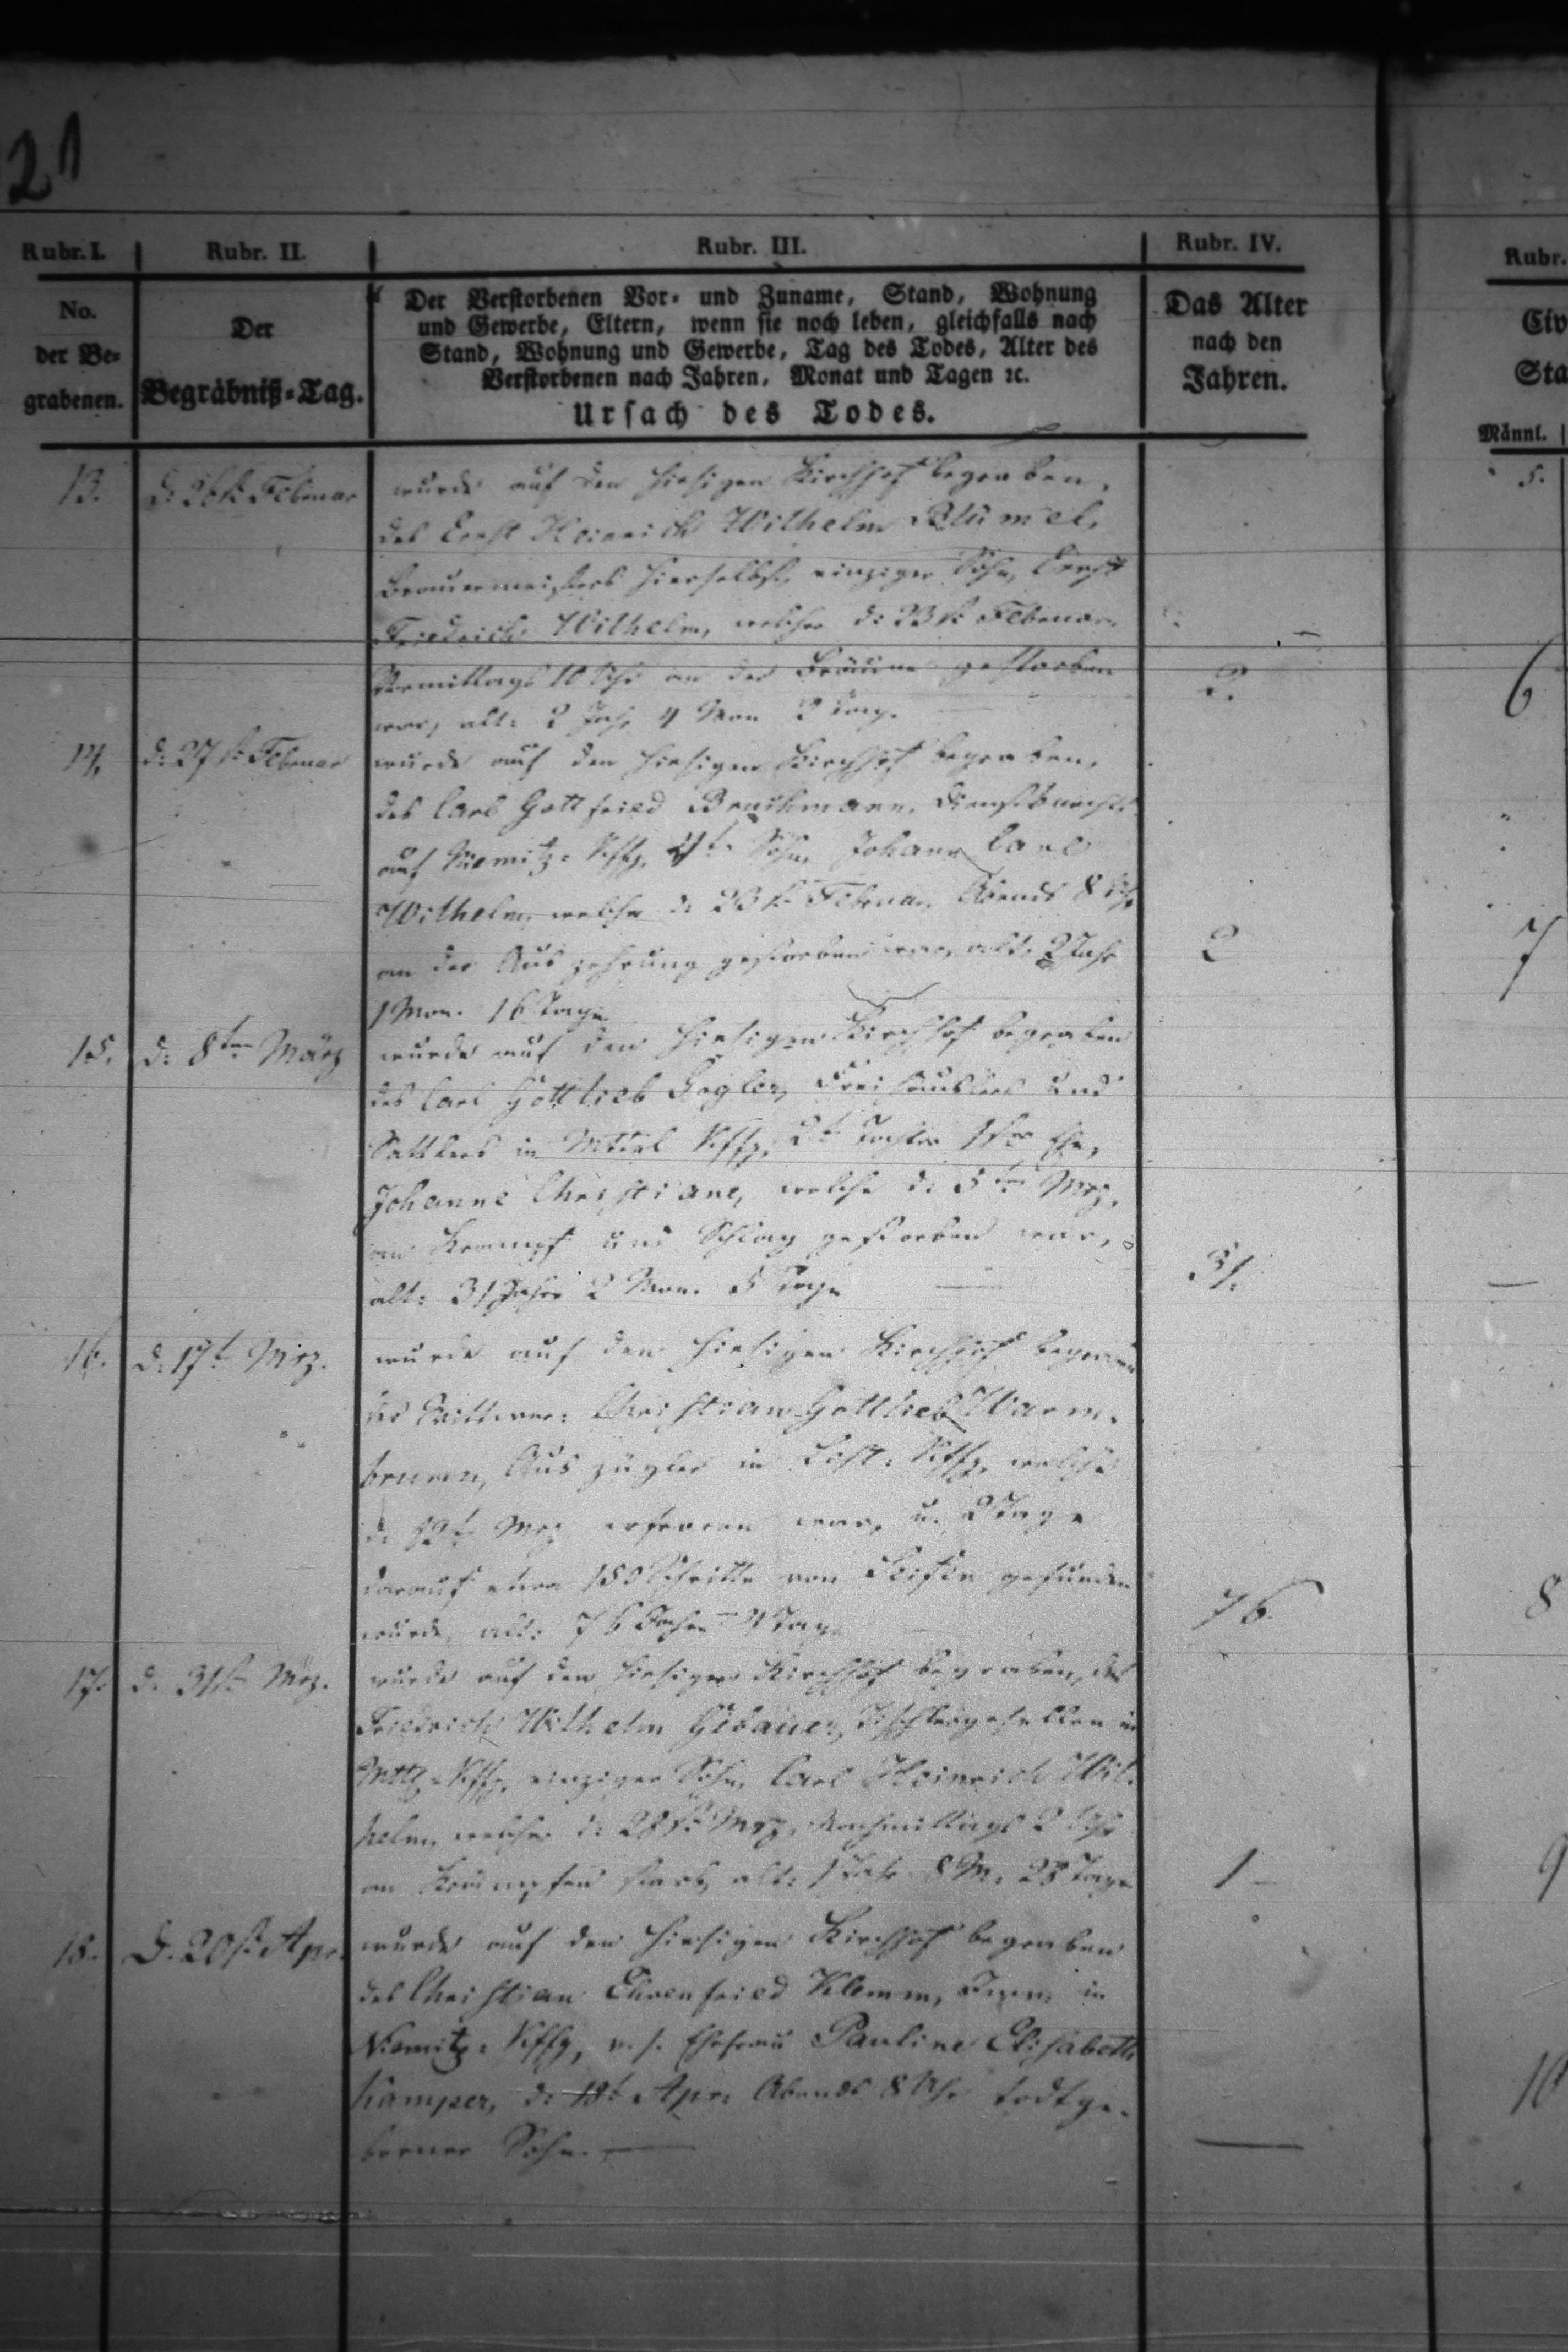 21
Rubr. I. Rubr. II. Rubr. III. Rubr. IV. Rubr.
No. der Be-grabenen.
Der Begräbniß-Tag.
Der Verstorbenen Vor- und Zuname, Stand, Wohnung
und Gewerbe, Eltern, wenn sie noch leben, gleichfalls nach
Stand, Wohnung und Gewerbe, Tag des Todes, Alter des
Verstorbenen nach Jahren, Monat und Tagen ꝛc.
Ursach des Todes.
Das Alter
nach den
Jahren.
Civ
Sta
Männl.
13. d: 26st. Februar wurde auf den hiesigen Kirchhof begraben, 5.
des Ernst Heinrich Wilhelm Blümel,
Brauermeisters hierselbst, einziger Sohn, Ernst
Friedrich Wilhelm, welcher d: 23st. Februar,
Vormittags 10 Uhr an der Bräune gestorben 2. 6
war, alt: 2 Jahr 4 Mon 2 Tage.
14. d: 27st. Februar wurde auf den hiesigen Kirchhof begraben,
des Carl Gottfried Bruchmann, Dienstknechts
auf Niemitz-Kffg, Sohn, Johann Carl
Wilhelm, welcher d: 23st. Februar, Abends 8 Uhr
an der Auszehrung gestorben war, alt: 2 Jahr 2 7
1 Mon. 16 Tage
15. d: 8ten März wurde auf den hiesigen Kirchhof begraben
des Carl Gottlieb Freihäuslers und
Sattlers in Mittel Kffg, 2t. Tochter 1ster Ehe,
Johanne Christiane, welche d: 5ten Mrz,
an Krampf und Schlag gestorben war,
alt: 31 Jahre 2 Mon. 5 Tage 31. —
16. d: 17t. Mrz. wurde auf den hiesigen Kirchhof begraben
der Wittwer: Christian Gottlieb Warm-
brunn, Auszügler in Kffg, welcher
d: 12t. Mrz erfroren war, u. 2 Tage
darauf etwa 150 Schritte von gefunden
wurde, alt: 76 Jahre 4 Tage 76. 8
17. d. 31st. Mrz. wurde auf den hiesigen Kirchhof begraben, des
Friedrich Wilhelm Gebauer, Tischlergesellen in
Mttl-Kffg, einziger Sohn, Carl Heinrich Wil-
helm, welcher d: 28st. Mrz, Nachmittags 2 Uhr
an Krämpfen starb, alt: 1 Jahr 8 M. 28 Tage 1 9
18. d. 20st. Apr. wurde auf den hiesigen Kirchhof begraben
des Christian Ehrenfried Klemm, in
Niemitz-Kffg, v. s. Ehefrau Pauline Elisabeth
Kamper, d: 18t. Apr: Abends 8 Uhr todtge- 10
borner Sohn. — —